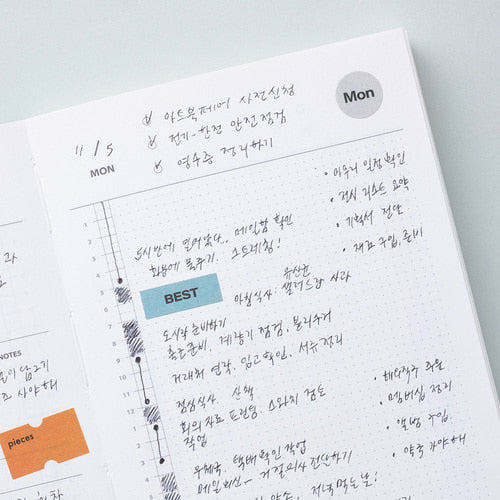 11/5
MON
아트북페어 사전신청
전기-한전 안전점검
영수증 정리하기
Mon
• 마무리 일정 확인
• 전시 리스트 요약
• 기획서 전달
• 재료 구입, 준비
5시반에 일어났다.. 메일함 확인
화분에 물주기. 스트레칭!
BEST
유산균
아침식사: 샐러드랑 사과
도시락 준비하기
출근준비, 계량기 점검, 물
거래처 연락, 입고확인, 서류정리
점심식사 산책
회의 자료 프린팅, 스와치 검토
작업
우체국, 택배확인 작업
메일회신 - 거절의사 전달하기
약속, 저녁 먹는 날!
• 해외직구 주문
• 멤버십 정리
• 앨범 구입.
• 약속 가야해
1
2
3
4
5
6
7
8
9
10
11
12
1
2
3
NOTES
담그기
사야해
pieces